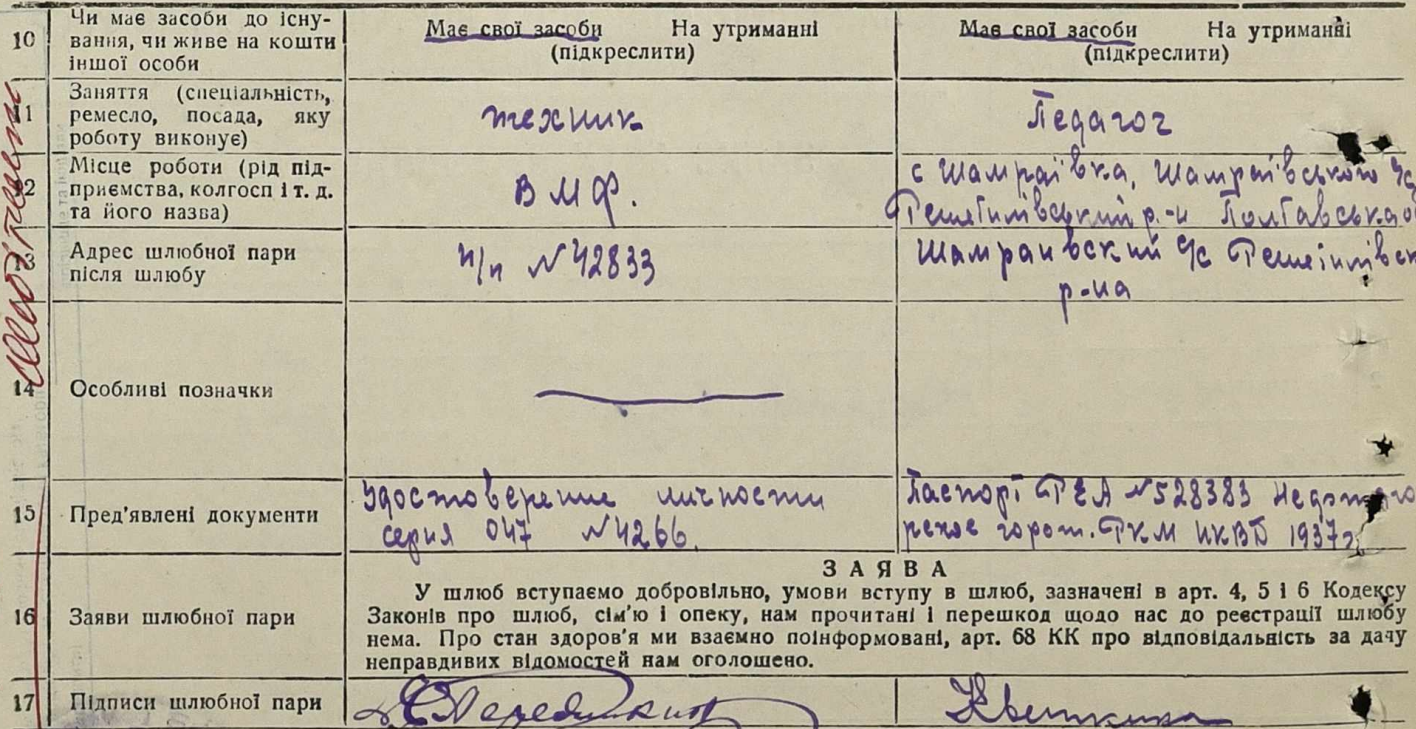 10
Чи має засоби до існу-
вання, чи живе на кошти
іншої особи
Має свої засоби На утриманні
(підкреслити)
Має свої засоби На утриманні
(підкреслити)
11
Заняття (спеціальність,
ремесло, посада, яку
роботу виконує)
техник
Педагог
12
Місце роботи (рід під-
приємства, колгосп і т. д.
та його назва)
В М Ф.
с Шамраївка, Шамраївського с/с
Решетилівський р-н Полтавська о
13
Адрес шлюбної пари
після шлюбу
п/п №42833
Шамраивский с/с Решетилівск
р-на
14
Особливі позначки
15
Пред'явлені документи
Удостоверение личности
серия 047 №4266.
Паспорт №528383
РКМ НКВД 1937г
16
Заяви шлюбної пари
ЗАЯВА
У шлюб вступаємо добровільно, умови вступу в шлюб, зазначені в арт. 4, 5 і 6 Кодексу
Законів про шлюб, сім'ю і опеку, нам прочитані і перешкод щодо нас до реєстрації шлюбу
нема. Про стан здоров'я ми взаємно поінформовані, арт. 68 КК про відповідальність за дачу
неправдивих відомостей нам оголошено.
17
Підписи шлюбної пари